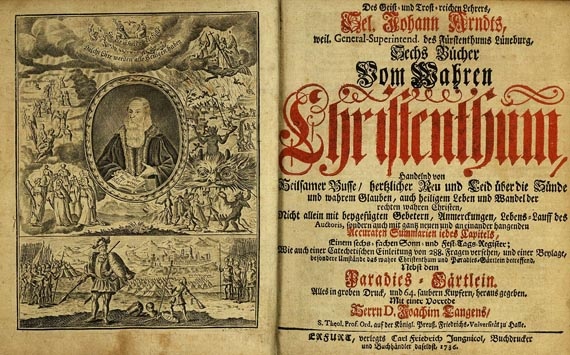 Des Geist- und Trost-reichen Lehrers,
Sel. Johann Arndts,
weil. General-Superintend. des Fürstenthums Lüneburg,
Sechs Bücher
Vom Wahren
Christenthum,
Handelnd von
Heilsamer Busse/ hertzlicher Reu und Leid über die Sünde
und wahrem Glauben, auch heiligem Leben und Wandel der
rechten wahren Christen,
Nicht allein mit beygefügten Gebetern, Anmerckungen, Lebens-Lauff des
Auctoris, sondern auch mit gantz neuen und an einander hangenden
Accuraten Summarien jedes Capitels,
Einem sechs-fachen Sonn- und Fest-Tags-Register;
Wie auch einer Catechetischen Einleitung von 288. Fragen versehen, und einer Beylage,
besondere Umstände das wahre Christenthum und Paradies-Gärtlein betreffend,
Nebst dem
Paradies-Gärtlein.
Alles in groben Druck, und 64. saubern Kupfern, heraus gegeben.
Mit einer Vorrede
Herrn D. Joachim Langens,
S. Theol. Prof. Ord. auf der Königl. Preuß. Friedrichs-Universität zu Halle.
ERFURT, verlegts Carl Friedrich Jungnicol, Buchdrucker
und Buchhändler daselbst. 1736.